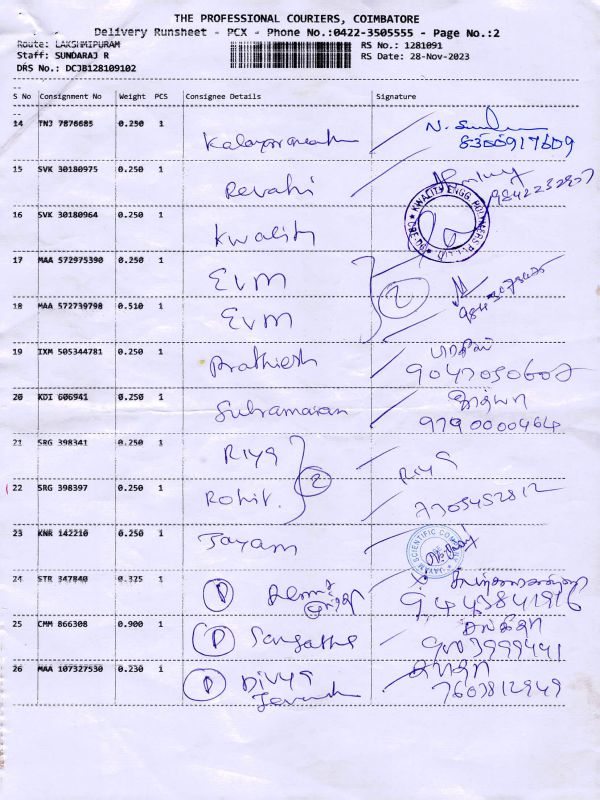 THE PROFESSIONAL COURIERS, COIMBATORE
Delivery Runsheet - PCX - Phone No.:0422-3505555 - Page No.:2
Route: LAKSHMIPURAM RS No.: 1281091
Staff: SUNDARAJ R RS Date: 28-Nov-2023
DRS No.: DCJB128109102
S No Consignment No Weight PCS Consignee Details Signature
14 TNJ 7876685 0.250 1
8300917609
15 SVK 30180975 0.250 1 Revathi
9842232807
16 SVK 30180964 0.250 1 Kwality
KWALITY ENGG. POLYMERS PVT LTD
17 MAA 572975390 0.250 1 EVM
2
18 MAA 572739798 0.510 1 EVM
19 IXM 505344781 0.250 1 Prathiesh
9047050602
20 KDI 606941 0.250 1 Subramanian
9790000464
21 SRG 398341 0.250 1 Riya Riya
2
22 SRG 398397 0.250 1 Rohit. 7305452812
23 KNR 142210 0.250 1 Jayam
JAYAM SCIENTIFIC COMPANY
24 STR 347840 0.325 1 D
9443841916
25 CMM 866308 0.900 1 D Sangatha
9003999491
26 MAA 107327530 0.230 1 D Divya
7603812949